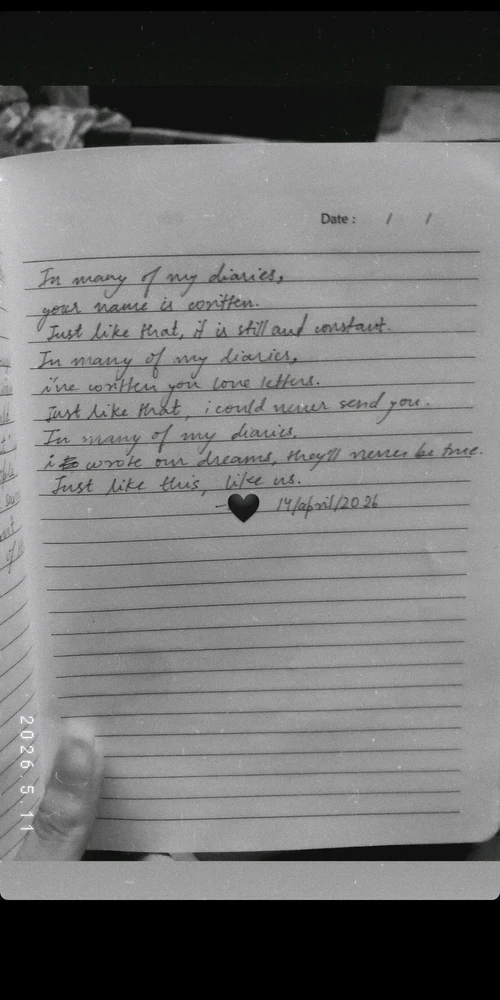 Date : / /
In many of my diaries,
your name is written.
Just like that, it is still and constant.
In many of my diaries,
i've written you love letters.
Just like that, i could never send you.
In many of my diaries,
i wrote our dreams, they'll never be true.
Just like this, like us.
-🖤 14/april/2026
2026.5.11